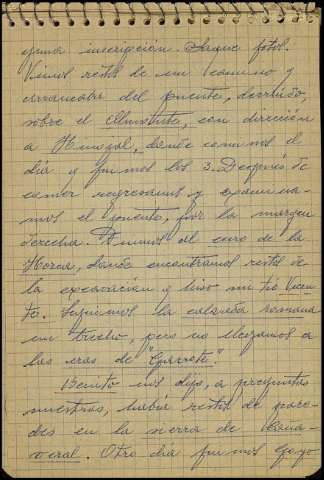 guna inscripción. Saqué fotos.
Vimos restos de un camino y
arrancaba del puente, derruido,
sobre el Almonte, con dirección
a Hinojal, donde comimos el
día y fuimos los 3. Después de
comer regresamos y examina-
mos el puente, por la margen
derecha. Fuimos al cerro de la
Horca, donde encontramos restos de
la excavación y hizo mi tío Vicen-
te. Seguimos la calzada romana
un trecho, pero no llegamos a
las eras de "Garrote".
Benito nos dijo, a preguntas
nuestras, había restos de pare-
des en la sierra de
. Otro día fuimos